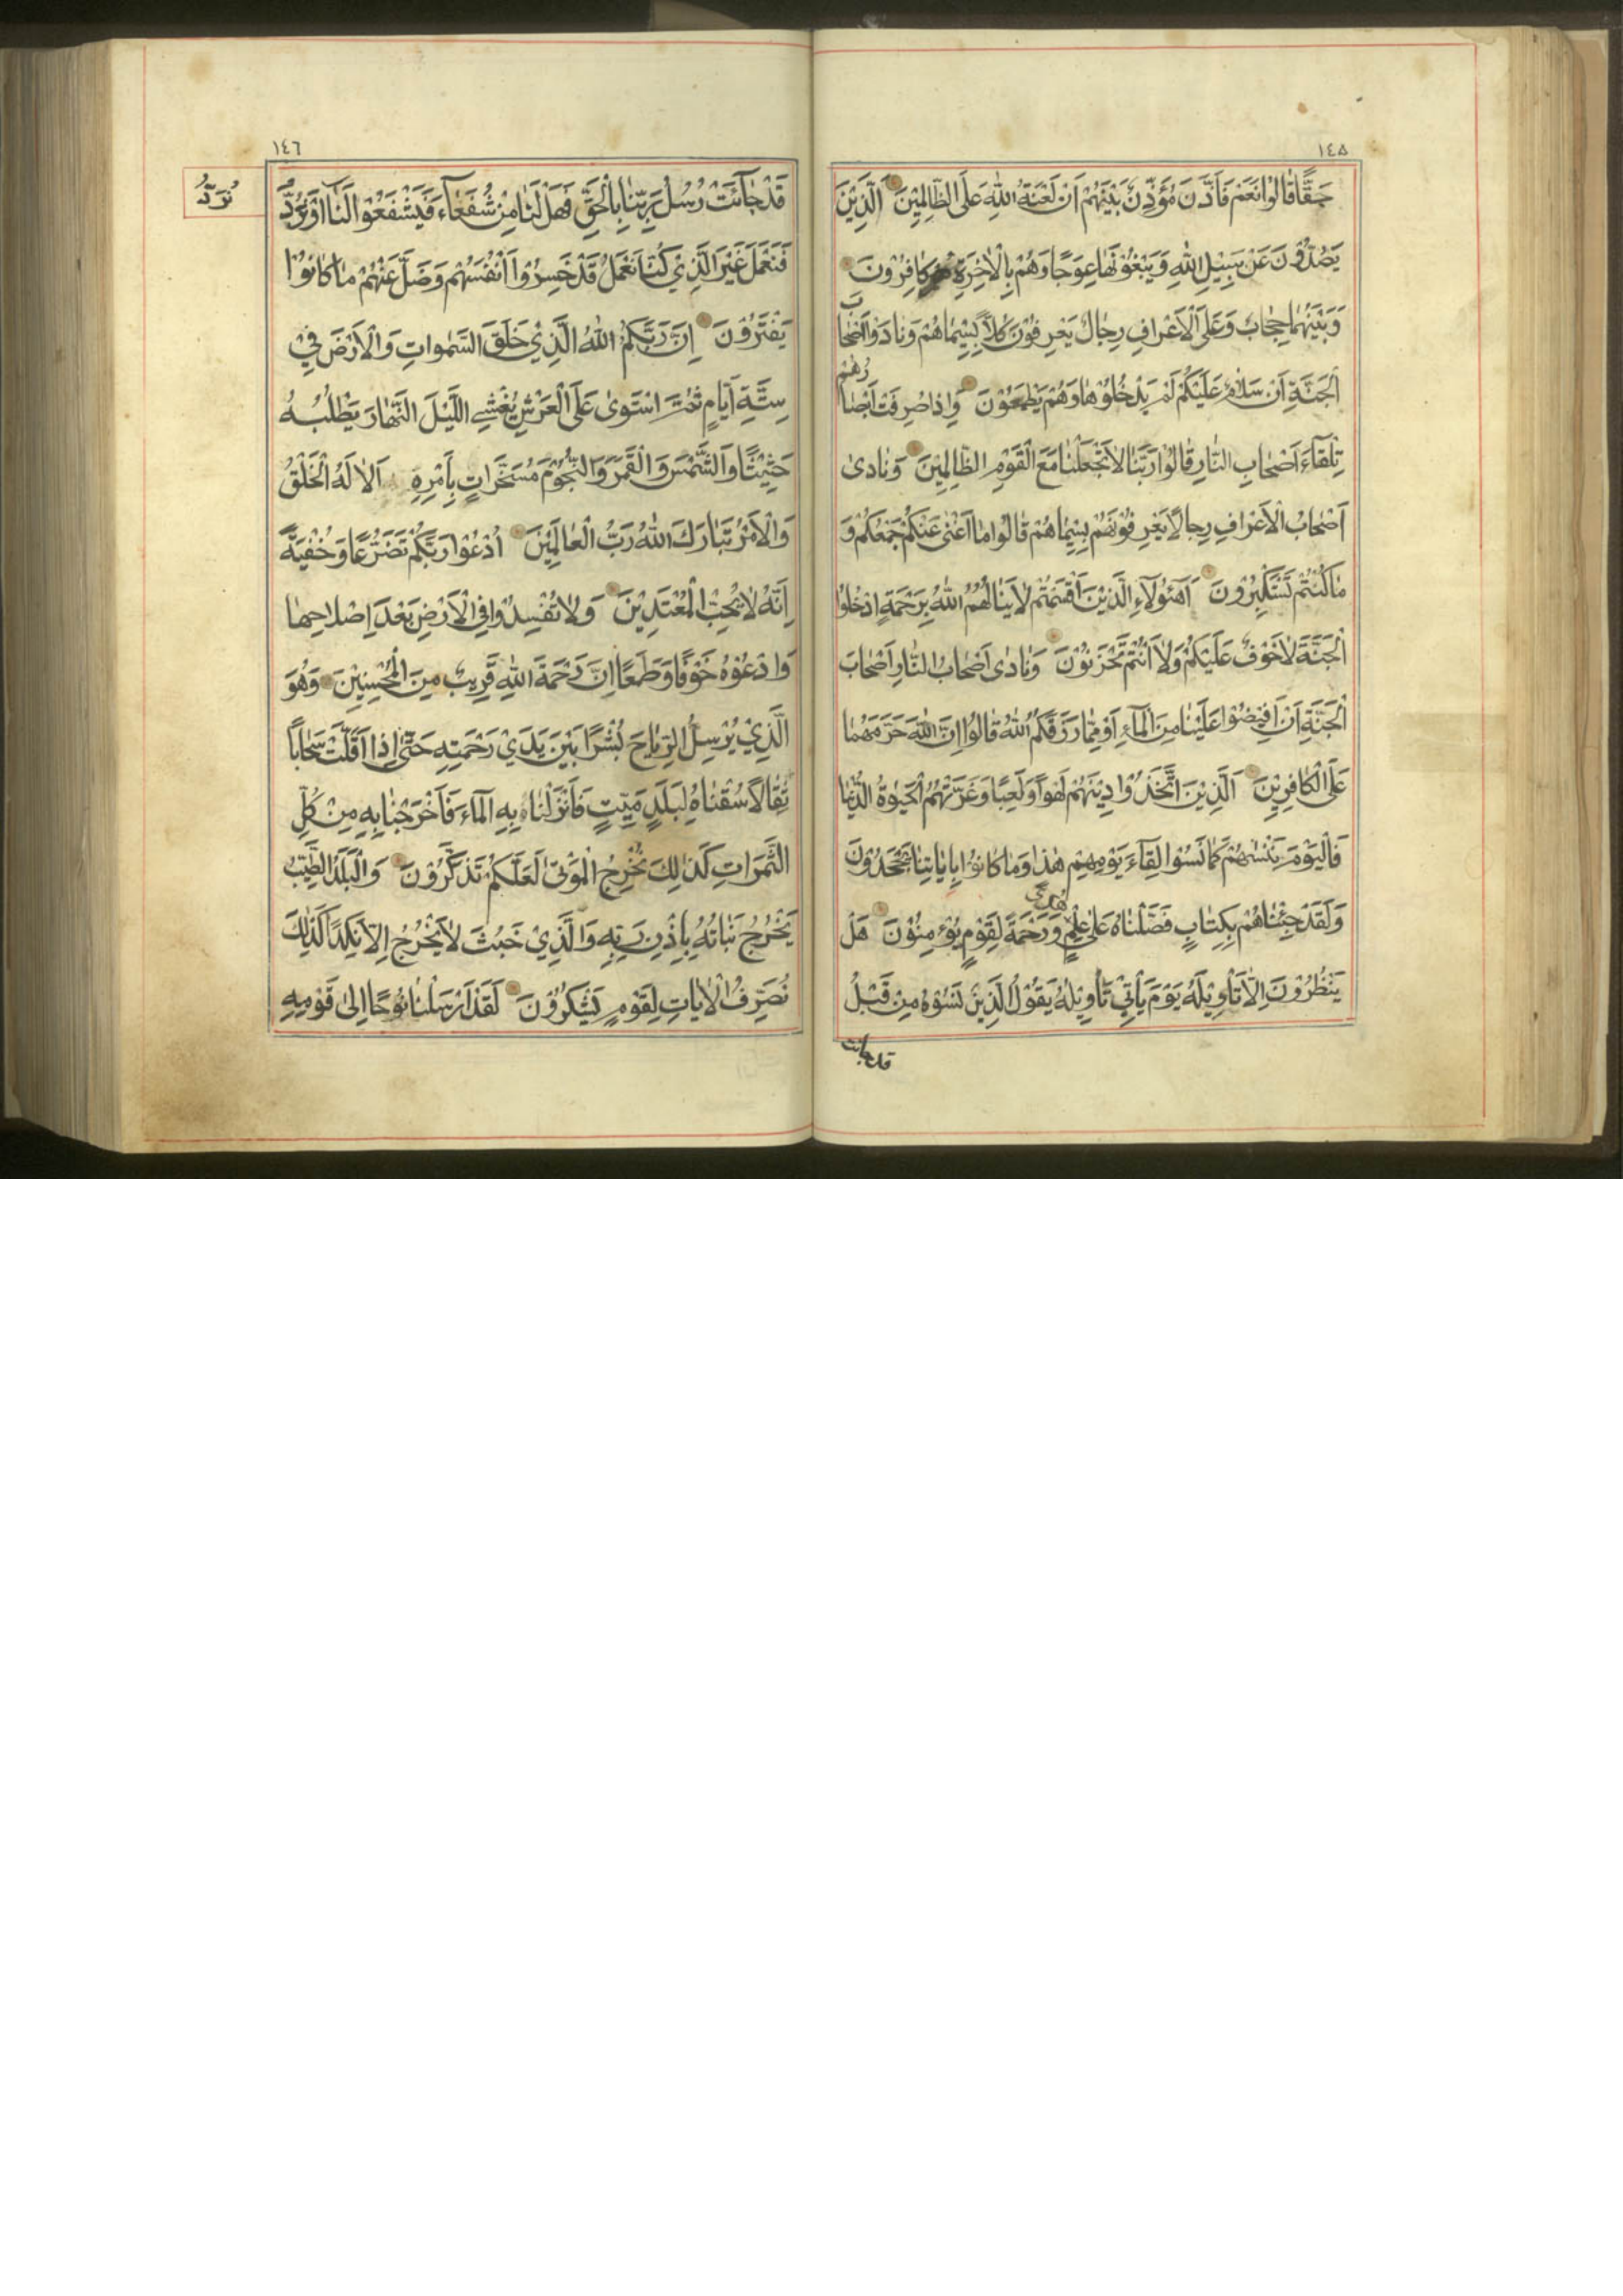 ١٤٥
حَقًّا قَالُوْا نَعَمْ فَاَذَّنَ مُؤَذِّنٌ بَيْنَهُمْ اَنْ لَعْنَةُ اللّٰهِ عَلَى الظَّالِمِيْنَ اَلَّذِيْنَ
يَصُدُّوْنَ عَنْ سَبِيْلِ اللّٰهِ وَيَبْغُوْنَهَا عِوَجًا وَهُمْ بِالْاٰخِرَةِ كَافِرُوْنَ
وَبَيْنَهُمَا حِجَابٌ وَعَلَى الْاَعْرَافِ رِجَالٌ يَعْرِفُوْنَ كُلًّا بِسِيْمَاهُمْ وَنَادَوْا اَصْحَابَ
الْجَنَّةِ اَنْ سَلَامٌ عَلَيْكُمْ لَمْ يَدْخُلُوْهَا وَهُمْ يَطْمَعُوْنَ وَاِذَا صُرِفَتْ اَبْصَارُهُمْ
تِلْقَاءَ اَصْحَابِ النَّارِ قَالُوْا رَبَّنَا لَا تَجْعَلْنَا مَعَ الْقَوْمِ الظَّالِمِيْنَ وَنَادٰى
اَصْحَابُ الْاَعْرَافِ رِجَالًا يَعْرِفُوْنَهُمْ بِسِيْمَاهُمْ قَالُوْا مَا اَغْنٰى عَنْكُمْ جَمْعُكُمْ وَ
مَا كُنْتُمْ تَسْتَكْبِرُوْنَ اَهٰؤُلَاءِ الَّذِيْنَ اَقْسَمْتُمْ لَا يَنَالُهُمُ اللّٰهُ بِرَحْمَةٍ اِدْخُلُوا
الْجَنَّةَ لَا خَوْفٌ عَلَيْكُمْ وَلَا اَنْتُمْ تَحْزَنُوْنَ وَنَادٰى اَصْحَابُ النَّارِ اَصْحَابَ
الْجَنَّةِ اَنْ اَفِيْضُوْا عَلَيْنَا مِنَ الْمَآءِ اَوْ مِمَّا رَزَقَكُمُ اللّٰهُ قَالُوْا اِنَّ اللّٰهَ حَرَّمَهُمَا
عَلَى الْكَافِرِيْنَ اَلَّذِيْنَ اتَّخَذُوْا دِيْنَهُمْ لَهْوًا وَلَعِبًا وَغَرَّتْهُمُ الْحَيٰوةُ الدُّنْيَا
فَالْيَوْمَ نَنْسٰهُمْ كَمَا نَسُوْا لِقَآءَ يَوْمِهِمْ هٰذَا وَمَا كَانُوْا بِاٰيَاتِنَا يَجْحَدُوْنَ
وَلَقَدْ جِئْنَاهُمْ بِكِتَابٍ فَصَّلْنَاهُ عَلٰى عِلْمٍ هُدًى وَرَحْمَةً لِقَوْمٍ يُؤْمِنُوْنَ هَلْ
يَنْظُرُوْنَ اِلَّا تَأْوِيْلَهُ يَوْمَ يَأْتِيْ تَأْوِيْلُهُ يَقُوْلُ الَّذِيْنَ نَسُوْهُ مِنْ قَبْلُ
قد جائت
١٤٦
قَدْ جَآئَتْ رُسُلُ رَبِّنَا بِالْحَقِّ فَهَلْ لَنَا مِنْ شُفَعَآءَ فَيَشْفَعُوْا لَنَا اَوْ نُرَدُّ
نُرَدُّ
فَنَعْمَلَ غَيْرَ الَّذِيْ كُنَّا نَعْمَلُ قَدْ خَسِرُوْا اَنْفُسَهُمْ وَضَلَّ عَنْهُمْ مَا كَانُوْا
يَفْتَرُوْنَ اِنَّ رَبَّكُمُ اللّٰهُ الَّذِيْ خَلَقَ السَّمٰوَاتِ وَالْاَرْضَ فِيْ
سِتَّةِ اَيَّامٍ ثُمَّ اسْتَوٰى عَلَى الْعَرْشِ يُغْشِي اللَّيْلَ النَّهَارَ يَطْلُبُهُ
حَثِيْثًا وَالشَّمْسَ وَالْقَمَرَ وَالنُّجُوْمَ مُسَخَّرَاتٍ بِاَمْرِهِ اَلَا لَهُ الْخَلْقُ
وَالْاَمْرُ تَبَارَكَ اللّٰهُ رَبُّ الْعَالَمِيْنَ اُدْعُوْا رَبَّكُمْ تَضَرُّعًا وَخُفْيَةً
اِنَّهُ لَا يُحِبُّ الْمُعْتَدِيْنَ وَلَا تُفْسِدُوْا فِي الْاَرْضِ بَعْدَ اِصْلَاحِهَا
وَادْعُوْهُ خَوْفًا وَطَمَعًا اِنَّ رَحْمَةَ اللّٰهِ قَرِيْبٌ مِنَ الْمُحْسِنِيْنَ وَهُوَ
الَّذِيْ يُرْسِلُ الرِّيَاحَ بُشْرًا بَيْنَ يَدَيْ رَحْمَتِهِ حَتّٰى اِذَا اَقَلَّتْ سَحَابًا
ثِقَالًا سُقْنَاهُ لِبَلَدٍ مَيِّتٍ فَاَنْزَلْنَا بِهِ الْمَآءَ فَاَخْرَجْنَا بِهِ مِنْ كُلِّ
الثَّمَرَاتِ كَذٰلِكَ نُخْرِجُ الْمَوْتٰى لَعَلَّكُمْ تَذَكَّرُوْنَ وَالْبَلَدُ الطَّيِّبُ
يَخْرُجُ نَبَاتُهُ بِاِذْنِ رَبِّهِ وَالَّذِيْ خَبُثَ لَا يَخْرُجُ اِلَّا نَكِدًا كَذٰلِكَ
نُصَرِّفُ الْاٰيَاتِ لِقَوْمٍ يَشْكُرُوْنَ لَقَدْ اَرْسَلْنَا نُوْحًا اِلٰى قَوْمِهِ